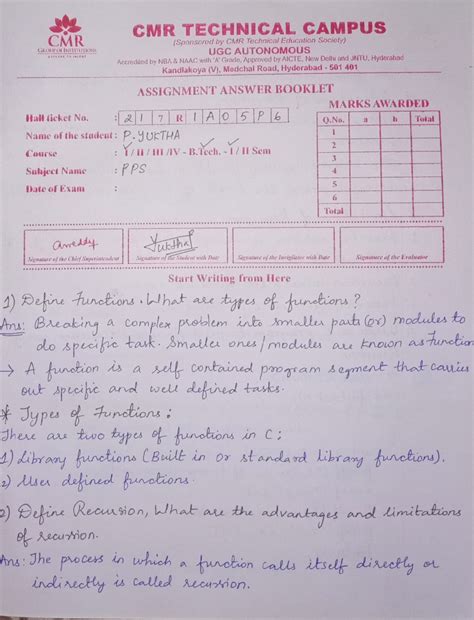 CMR
GROUP OF INSTITUTIONS
EXPLORE TO INVENT
CMR TECHNICAL CAMPUS
(Sponsored by CMR Technical Education Society)
UGC AUTONOMOUS
Accredited by NBA & NAAC with 'A' Grade, Approved by AICTE, New Delhi and JNTU, Hyderabad
Kandlakoya (V), Medchal Road, Hyderabad - 501 401
ASSIGNMENT ANSWER BOOKLET
MARKS AWARDED
Hall ticket No. : 217R1A05P6
Q.No. a b Total
1
2
3
4
5
6
Total
Name of the student : P. YUKTHA
Course : I / II / III /IV - B.Tech. - I / II Sem
Subject Name : PPS
Date of Exam :
Yuktha
Signature of the Chief Superintendent Signature of the Student with Date Signature of the Invigilator with Date Signature of the Evaluator
Start Writing from Here
1) Define Functions. What are types of functions?
Ans: Breaking a complex problem into smaller parts (or) modules to
do specific task. Smaller ones/modules are known as Function
→ A function is a self contained program segment that carries
out specific and well defined tasks.
* Types of Functions;
There are two types of functions in C;
1) Library functions (Built in or standard library functions).
2) User defined functions.
2) Define Recursion, What are the advantages and limitations
of recursion.
Ans: The process in which a function calls itself directly or
indirectly is called recursion.